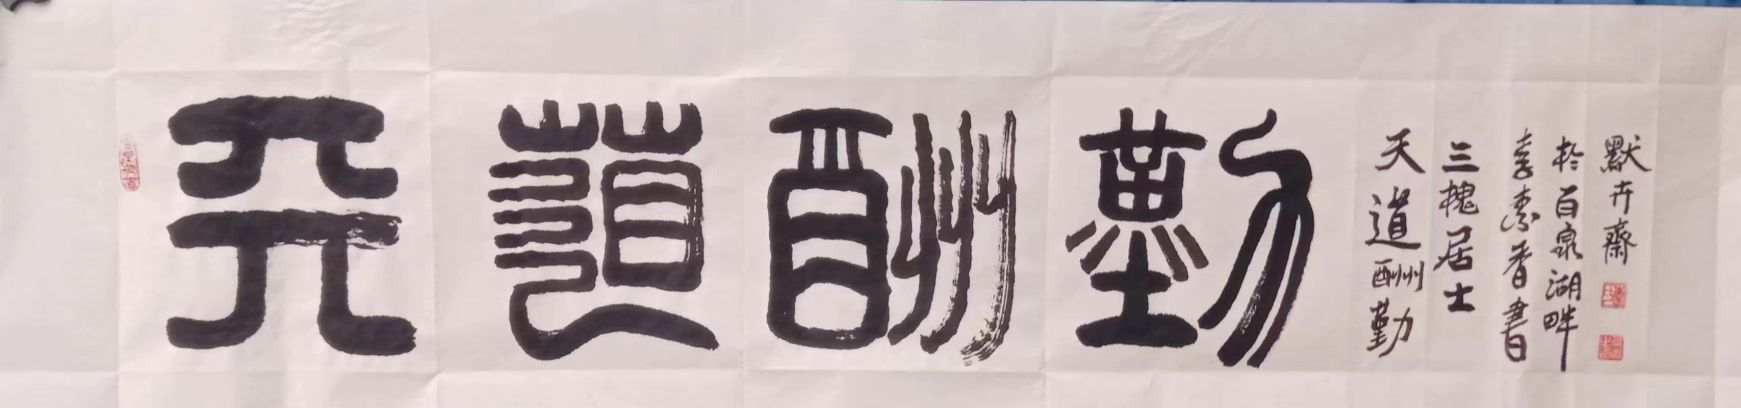 天道酬勤
天道酬勤
三槐居士
李素香書
於百泉湖畔
默卉齋